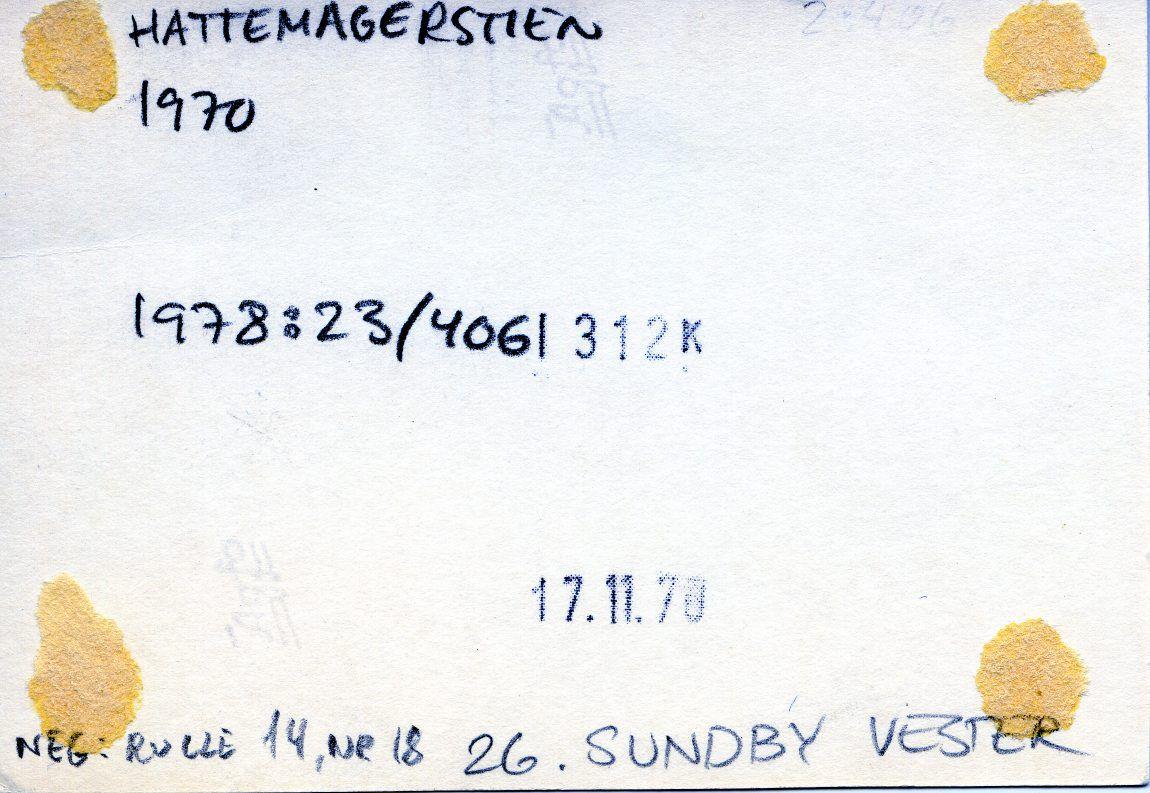 HATTEMAGERSTIEN
1970
1978:23/4061 312K
17.11.70
NEG: RULLE 14, NR 18 26. SUNDBY VESTER